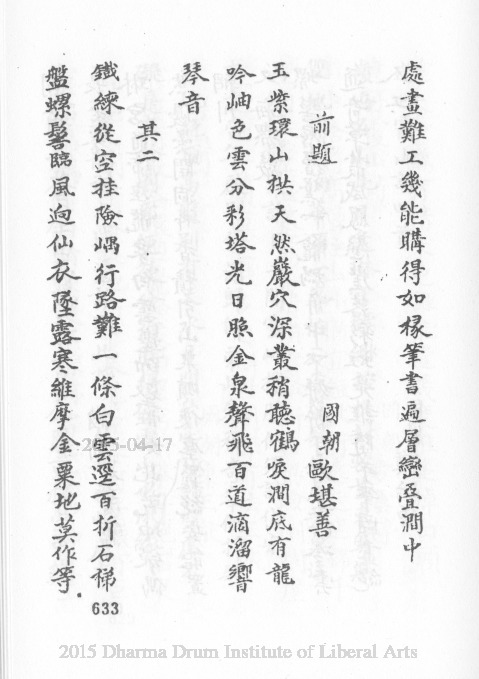 處畫難工幾能購得如椽筆書遍層巒疊澗中
前題
國朝歐堪善
玉紫環山拱天然巖穴深叢稍聽鶴唳澗底有龍
吟岫色雲分彩塔光日照金泉聲飛百道滴溜響
琴音
其二
鐵練從空挂險嵎行路難一條白雲逕百折石梯
盤螺鬟臨風逈仙衣墜露寒維摩金粟地莫作等
633
2015-04-17
2015 Dharma Drum Institute of Liberal Arts